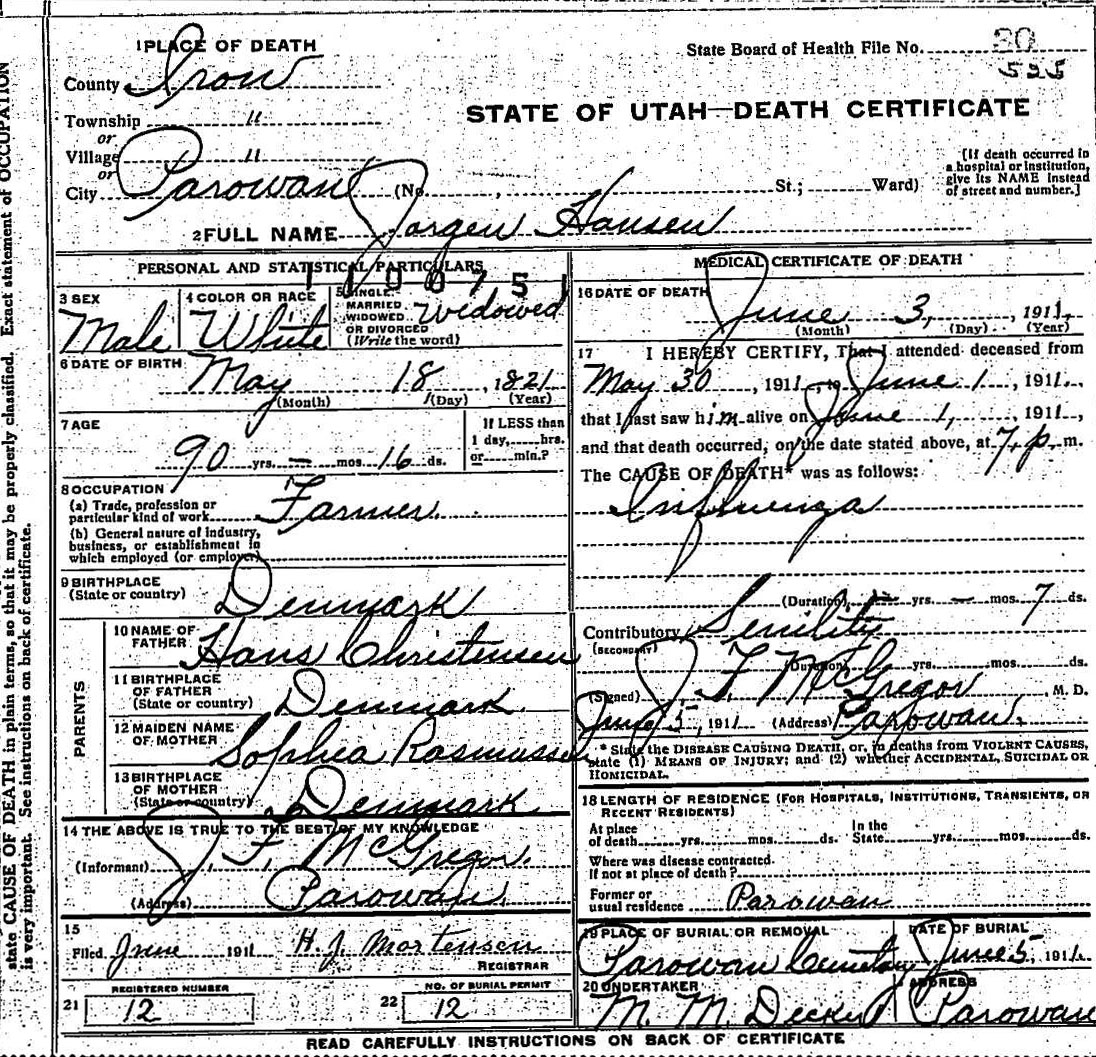 state CAUSE OF DEATH in plain terms, so that it may be properly classified. Exact statement of OCCUPATION
is very important. See instructions on back of certificate.
1 PLACE OF DEATH
State Board of Health File No.
County Iron
STATE OF UTAH—DEATH CERTIFICATE
Township "
or
Village "
or
City Parowan (No. , St.; Ward)
[If death occurred in
a hospital or institution,
give its NAME instead
of street and number.]
2 FULL NAME Jorgen Hansen
PERSONAL AND STATISTICAL PARTICULARS
1100751
3 SEX
Male
4 COLOR OR RACE
White
5 SINGLE,
MARRIED
WIDOWED
OR DIVORCED
(Write the word)
Widowed
6 DATE OF BIRTH
May 18, 1821
(Month) (Day) (Year)
7 AGE
90 yrs. — mos. 16 ds.
If LESS than
1 day, hrs.
or min.?
8 OCCUPATION
(a) Trade, profession or
particular kind of work Farmer
(b) General nature of industry,
business, or establishment in
which employed (or employer)
9 BIRTHPLACE
(State or country)
Denmark
PARENTS
10 NAME OF
FATHER
Hans Christensen
11 BIRTHPLACE
OF FATHER
(State or country)
Denmark
12 MAIDEN NAME
OF MOTHER
Sophia Rasmussen
13 BIRTHPLACE
OF MOTHER
(State or country)
Denmark
14 THE ABOVE IS TRUE TO THE BEST OF MY KNOWLEDGE
(Informant) J. F. McGregor.
(Address) Parowan.
15
Filed June 1911 H. J. Mortensen
REGISTRAR
REGISTERED NUMBER
21 12
NO. OF BURIAL PERMIT
22 12
MEDICAL CERTIFICATE OF DEATH
16 DATE OF DEATH
June 3, 1911.
(Month) (Day) (Year)
17 I HEREBY CERTIFY, That I attended deceased from
May 30, 1911, to June 1, 1911.,
that I last saw him alive on June 1, 1911,
and that death occurred, on the date stated above, at 7. p. m.
The CAUSE OF DEATH* was as follows:
Influenza
(Duration) — yrs. — mos. 7 ds.
Contributory Senility
(SECONDARY)
(Duration) yrs. mos. ds.
(Signed) J. F. McGregor, M. D.
June 5, 1911 (Address) Parowan.
* State the DISEASE CAUSING DEATH, or, in deaths from VIOLENT CAUSES,
state (1) MEANS OF INJURY; and (2) whether ACCIDENTAL, SUICIDAL OR
HOMICIDAL.
18 LENGTH OF RESIDENCE (FOR HOSPITALS, INSTITUTIONS, TRANSIENTS, OR
RECENT RESIDENTS)
At place
of death yrs. mos. ds.
In the
State yrs. mos. ds.
Where was disease contracted.
If not at place of death?
Former or
usual residence Parowan
19 PLACE OF BURIAL OR REMOVAL
Parowan Cemetary
DATE OF BURIAL
June 5, 1911.
20 UNDERTAKER
M. M. Decker
ADDRESS
Parowan
READ CAREFULLY INSTRUCTIONS ON BACK OF CERTIFICATE